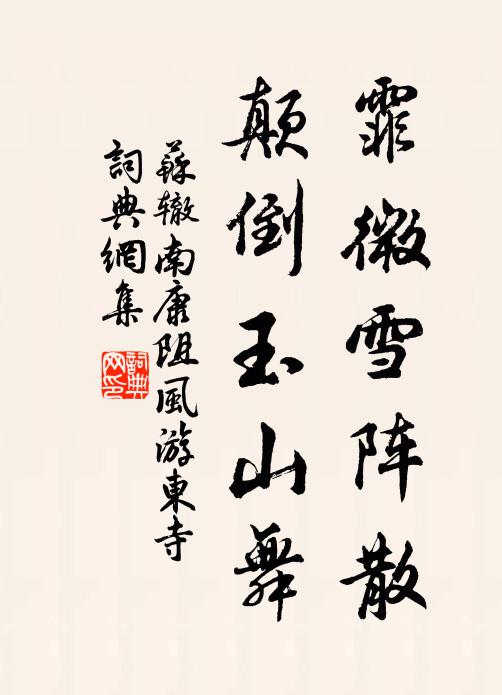 霏微雪阵散
颠倒玉山舞
蘇辙南康阻風游東寺
詞典網集
詞典网印